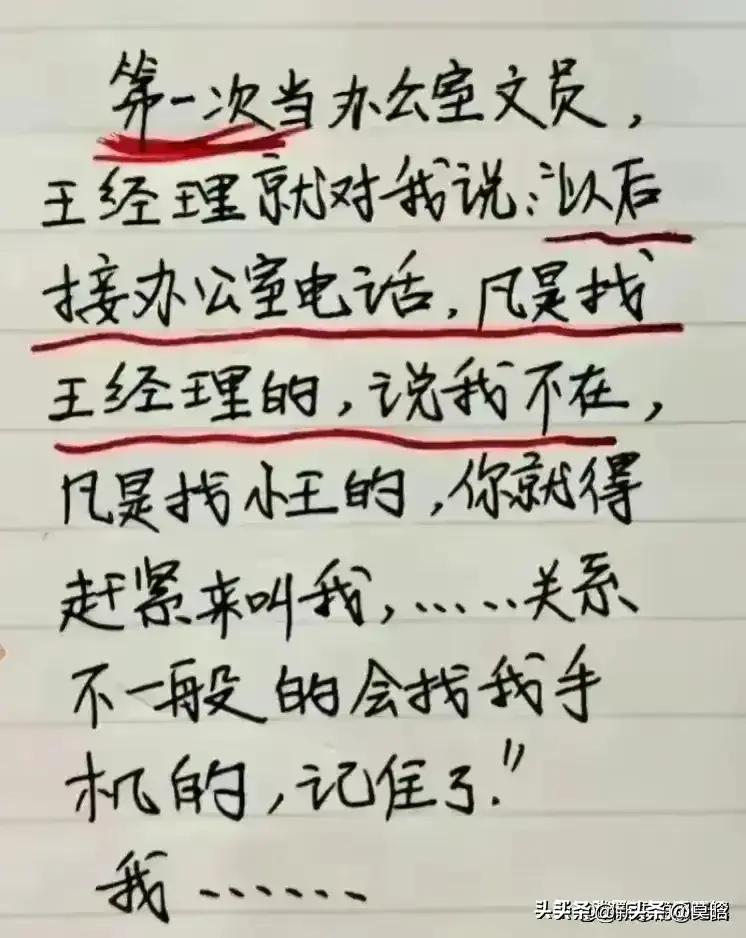 第一次当办公室文员，
王经理就对我说："以后
接办公室电话，凡是找
王经理的，说我不在，
凡是找小王的，你就得
赶紧来叫我，……关系
不一般的会找我手
机的，记住了."
我……
头条